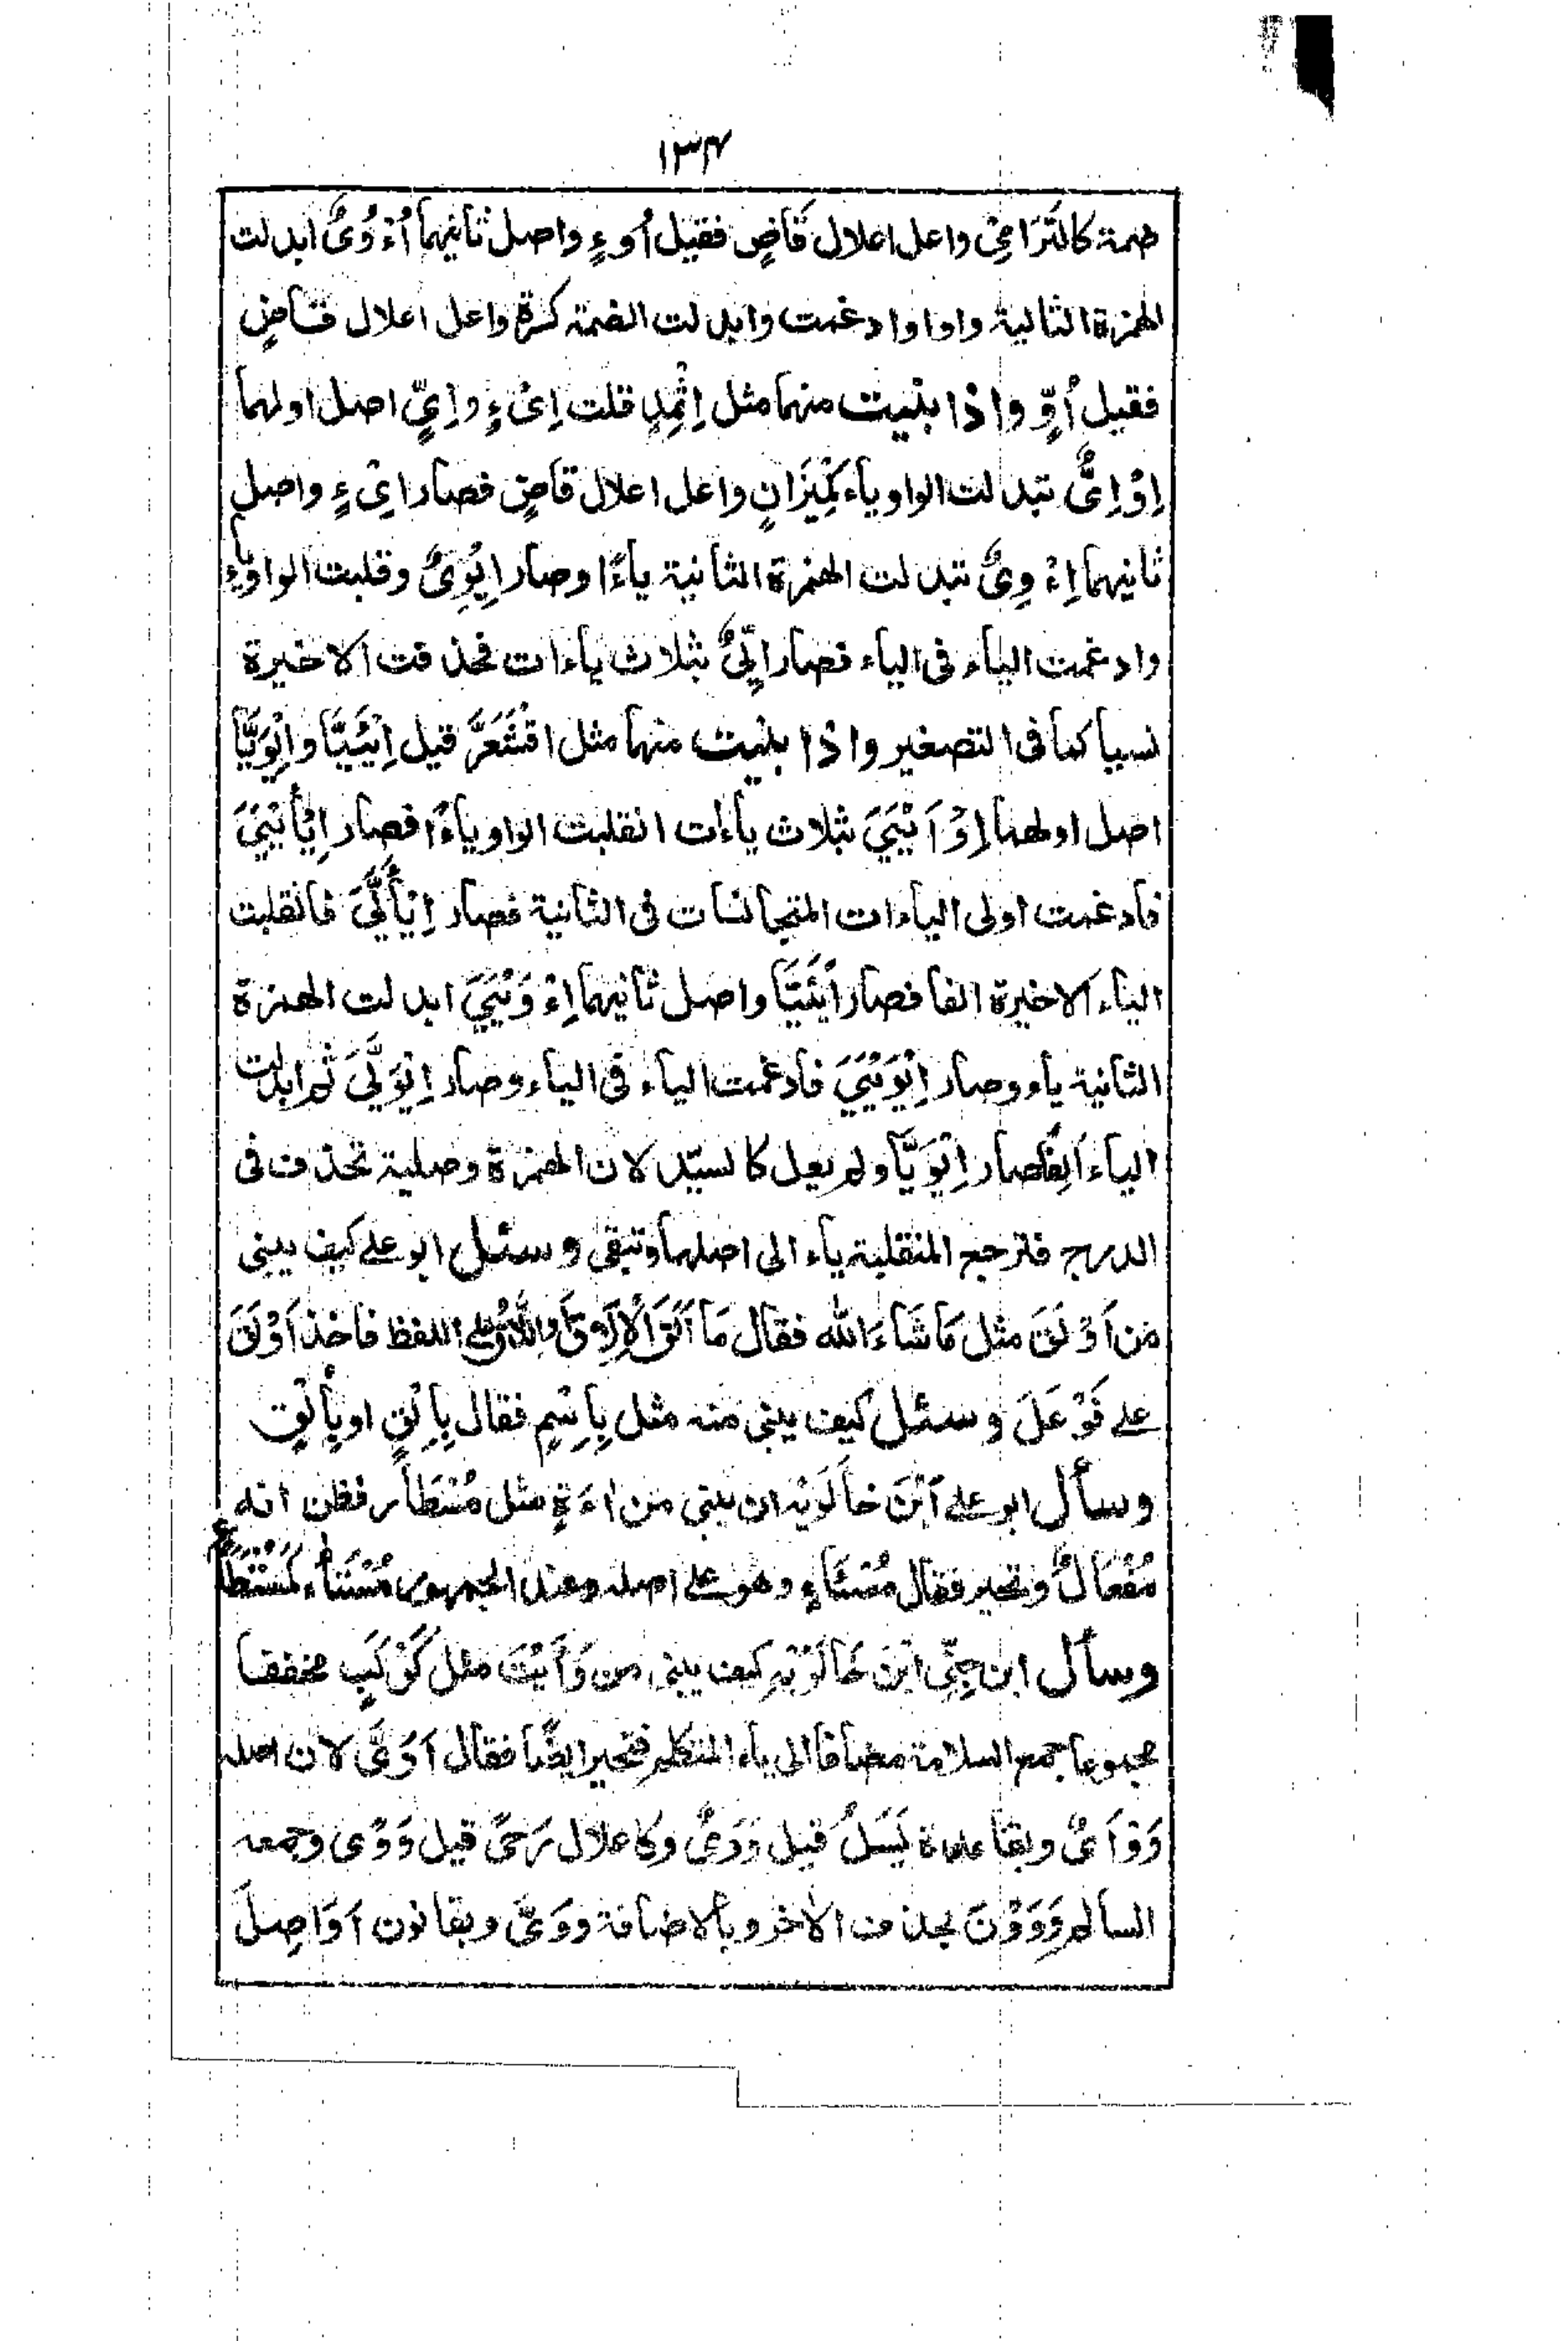 ١٣٤
ضمة كالتَّرَامِيْ واعل اعلال قَاضٍ فقيل اُوءٍ واصل ثانيهما اُءْوُىٌ ابدلت
الهمزة الثانية واوا وادغمت وابدلت الضمة كسرة واعل اعلال قاضٍ
فقيل اُوٍّ واذا بنيت منهما مثل اِثْمِدٍ قلت اِىْءٍ واِىٍّ اصل اولهما
اِوْاِىٌ تبدلت الواو ياء كَمِيْزَانٍ واعل اعلال قاضٍ فصار اِىْءٍ واصل
ثانيهما اِءْوِىٌ تبدلت الهمزة الثانية ياءً وصار اِيْوِىٌ وقلبت الواو ياء
وادغمت الياء فى الياء فصار اِيِّىٌ بثلاث ياءات فحذفت الاخيرة
نسيا كما فى التصغير واذا بنيت منهما مثل اقْشَعَرَّ قيل اِيْئَيَّا واِيْوَيَّا
اصل اولهما اِوْاَيْيَىَ بثلاث ياءات انقلبت الواو ياءً فصار اِيْأَيْيَىَ
فادغمت اولى الياءات المتجانسات فى الثانية فصار اِيْأَيَّىَ فانقلبت
الياء الاخيرة الفا فصار اِيْئَيَّا واصل ثانيهما اِءْوَيْيَىَ ابدلت الهمزة
الثانية ياء وصار اِيْوَيْيَىَ فادغمت الياء فى الياء وصار اِيْوَيَّىَ ثم ابدلت
الياء اَلِفًا فصار اِيْوَيَّا ولم يعل كالسيّد لان الهمزة وصلية تحذف فى
الدرج فترجع المنقلبة ياء الى اصلها وتبقى وسئل ابو على كيف يبنى
مَن اَوْلَقَ مثل مَا شَاءَ الله فقال مَا اَلَقَ الْاِلَاقُ على اللفظ فاخذ اَوْلَقَ
على فَوْعَلَ وسئل كيف يبنى منه مثل بِاِسْمٍ فقال بِاِلْقٍ او بِاُلْقٍ
وسأل ابو على اِبْنَ خَالَوَيْه ان يبنى من اءَةٍ مثل مُسْطَار فظن انه
مُفْعَالٌ وتحير فقال مُسْئَاءٍ وهو على اصله وعند الجمهور مُسْتَاءٌ كمُسْتَطَاعٍ
وسأل ابن جِنِّى اِبْنَ خَالَوَيْهِ كيف يبنى من وَأَيْتَ مثل كَوْكَبٍ مخففا
مجموعا جمع السلامة مضافا الى ياء المتكلم فتحير ايضًا فقال اَوَىَّ لان اصله
وَوْاَىٌ وبقاعدة يَسَلُ قيل وَوَىٌ وكاعلال رَحًى قيل وَوًى وجمعه
السالم وَوَوْنَ بحذف الاخر وبالاضافة وَوَىَّ وبقانون اَوَاصِلَ